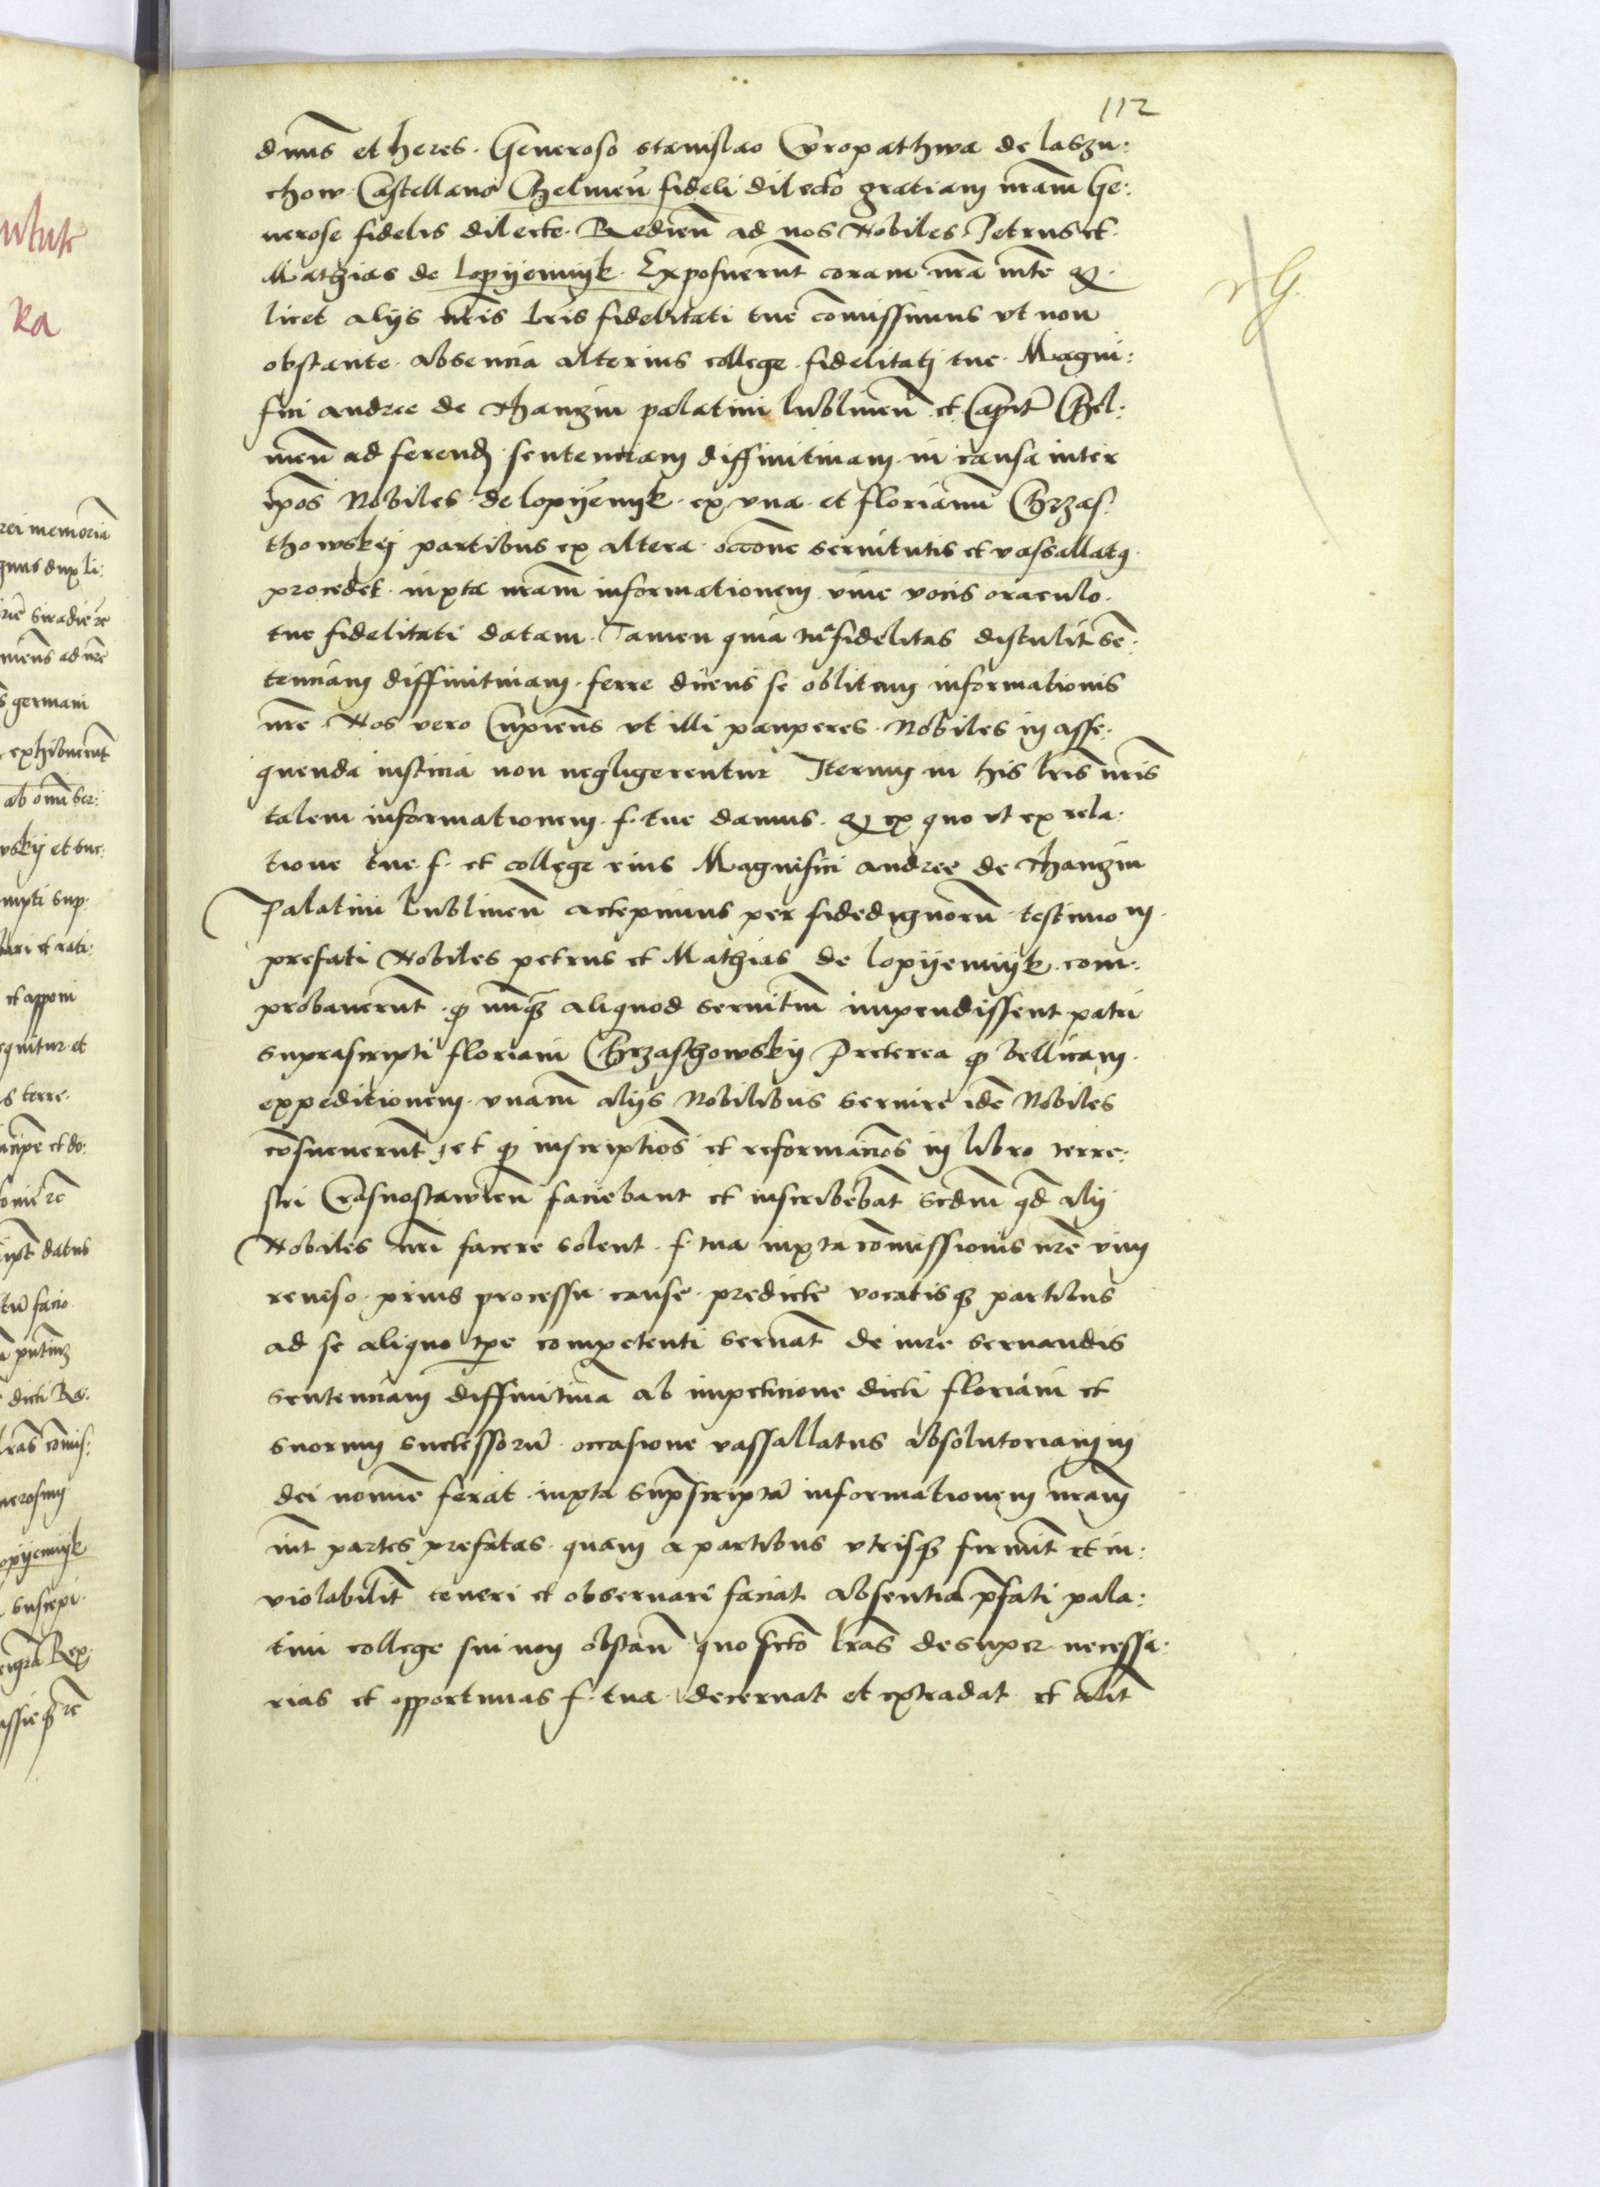 112
dnus et heres. Generoso stanislao Cropathwa de laszu:
chow Castellano Chelmen fideli dilecto gratiam nram Ge:
nerose fidelis dilecte. Redien ad nos Nobiles Petrus et
Mathias de lopyennyk. Exposuerunt coram nra mte q
licet alijs nris lris fidelitati tue comissimus vt non
obstante absencia alterius college fidelitatj tue Magni:
fici andree de thanzin palatini lublinen et Capit Chel:
men ad ferend sentenciam diffinitiuam in causa inter
ipos Nobiles de lopyennyk ex vna et florianu Chrzas:
thowskij partibus ex altera occone seruitutis et vassallatq
procedet iuxta nram informationem viue vocis oraculo
tue fidelitati datam. Tamen quia tua fidelitas distulit sen:
tenciam diffinitiuam ferre dicens se oblitum informationis
nre. Nos vero Cupiens vt illi pauperes Nobiles in asse:
quenda iusticia non negligerentur Iterum in his lris nris
talem informationem. f. tue damus. q ex quo vt ex rela:
tione tue f. et college eius Magnifici andree de thanzin
Palatini lublinen accepimus per fidedignoru testimo m
prefati Nobiles petrus et Mathias de lopyennyk com:
probauerunt q nunq aliquod seruitiu impendissent patri
suprascripti floriani Chrzasthowskij Preterea q bellicam
expeditionem vnam alijs Nobilibus seruire ide Nobiles
consueuerunt, et q inscriptios et reformacios in libro terre:
stri Crasnostawien faciebant et inscribebat scdm qd alij
Nobiles nri facere solent. f. tua iuxta comissionis nre vim
reuiso prius processu cause predicte vocatisq partibus
ad se aliquo tpe competenti seruat de iure seruandis
sentenciam diffinitiua ab impeticione dicti floriani et
suorum successoru occasione vassallatus absolutoriam in
dei nomine ferat iuxta supscripta informationem nram
int partes prefatas quam a partibus vtrisq firmit et in:
violabilit teneri et obseruari faciat absentia pfati pala:
tini college sui non obstan quo scto lras desuper necessa:
rias et opportunas f. tua decernat et extradat et alit